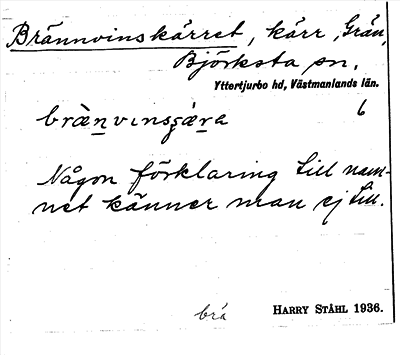 Brännvinskärret, kärr, Grän,
Björksta sn.
Yttertjurbo hd, Västmanlands län.
6
Någon förklaring till nam-
net känner man ej till.
brä
HARRY STÅHL 1936.